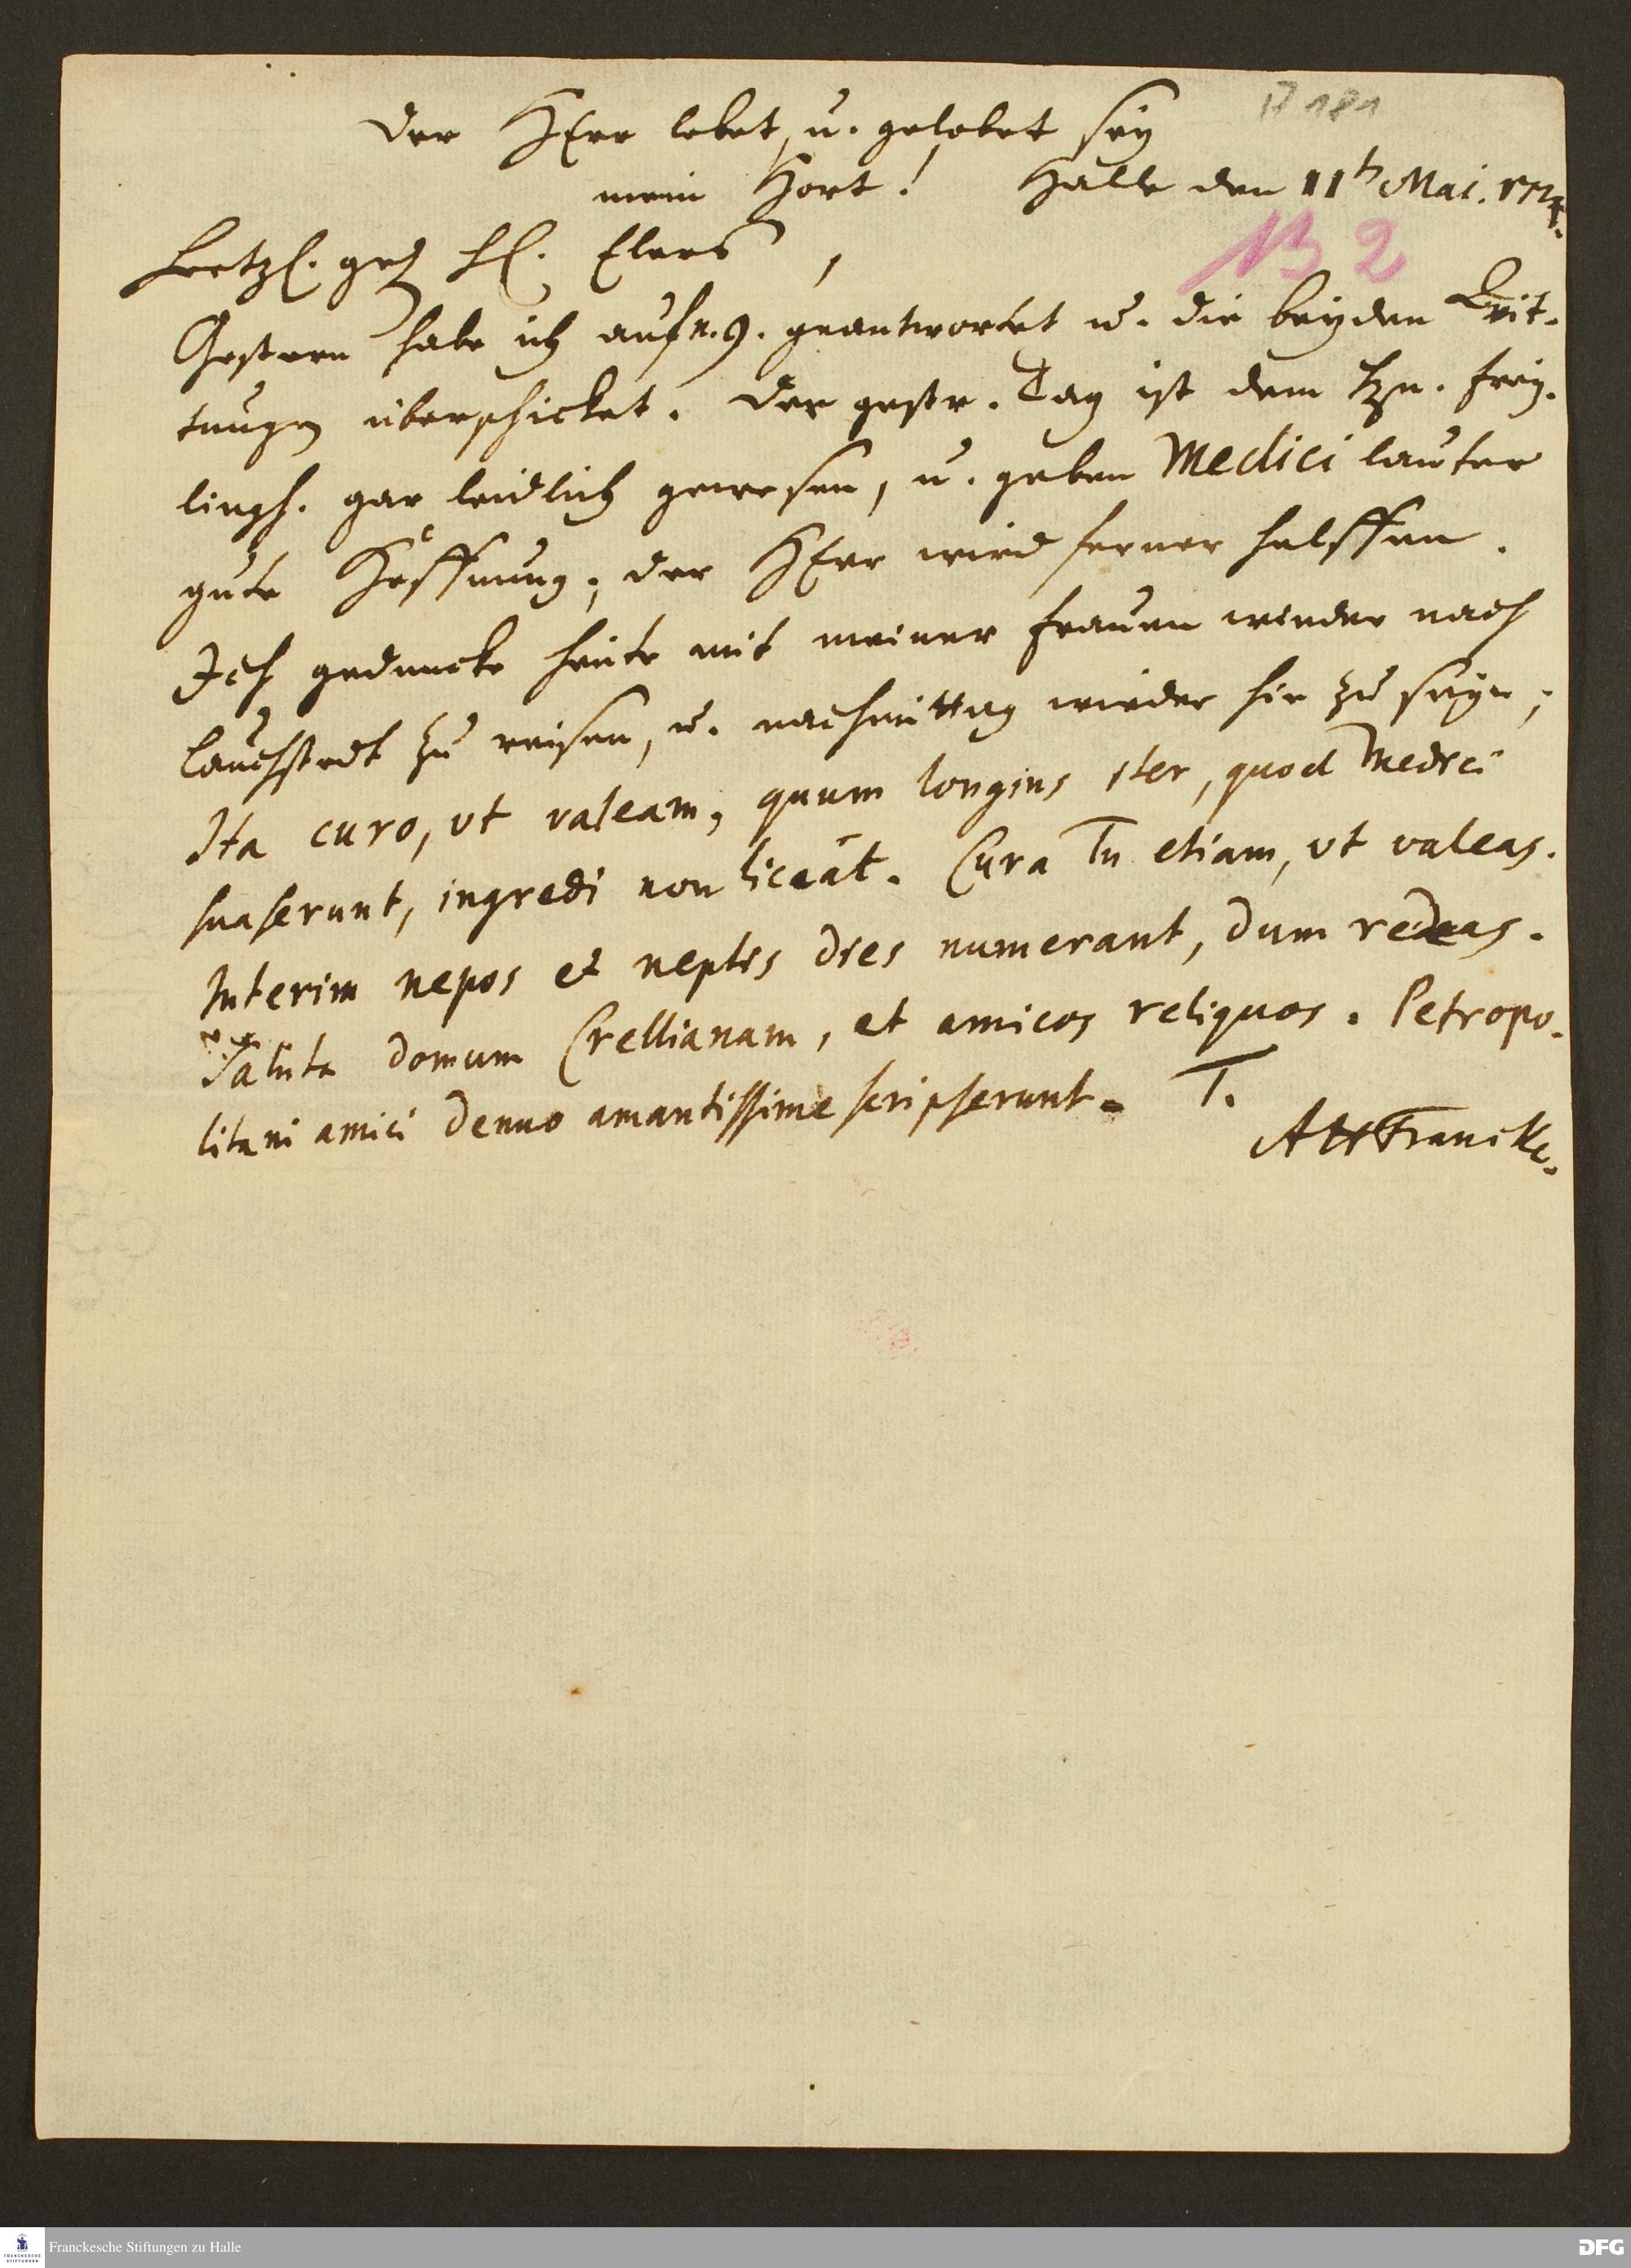 Der HErr lebet, u. gelobet sey
17 181
mein Hort! Halle den 11t Mai. 172
132
Hertzl. gel. H. Elers,
Gestern habe ich auf n. 9. geantwortet u. die beyden Qvit-
tungen überschicket. Der gestr. Tag ist dem Hn. Frey-
lingh. gar leidlich gewesen, u. geben Medici lauter
gute Hoffnung; der HErr wird ferner helffen.
Ich gedencke heute mit meiner Frauen wieder nach
Lauchstedt zu reisen, u. nachmittag wieder hie zu seyn;
Ita curo, ut valeam, quum longius iter, quod Medici
suaserunt, ingredi non liceat. Cura Tu etiam, ut valeas.
Interim nepos et neptis dies numerant, dum redeas.
Saluta domum Crellianam, et amicos reliquos. Petropo-
litani amici denuo amantissime scripserunt. T.
AHFrancke.
Franckesche Stiftungen zu Halle
DFG